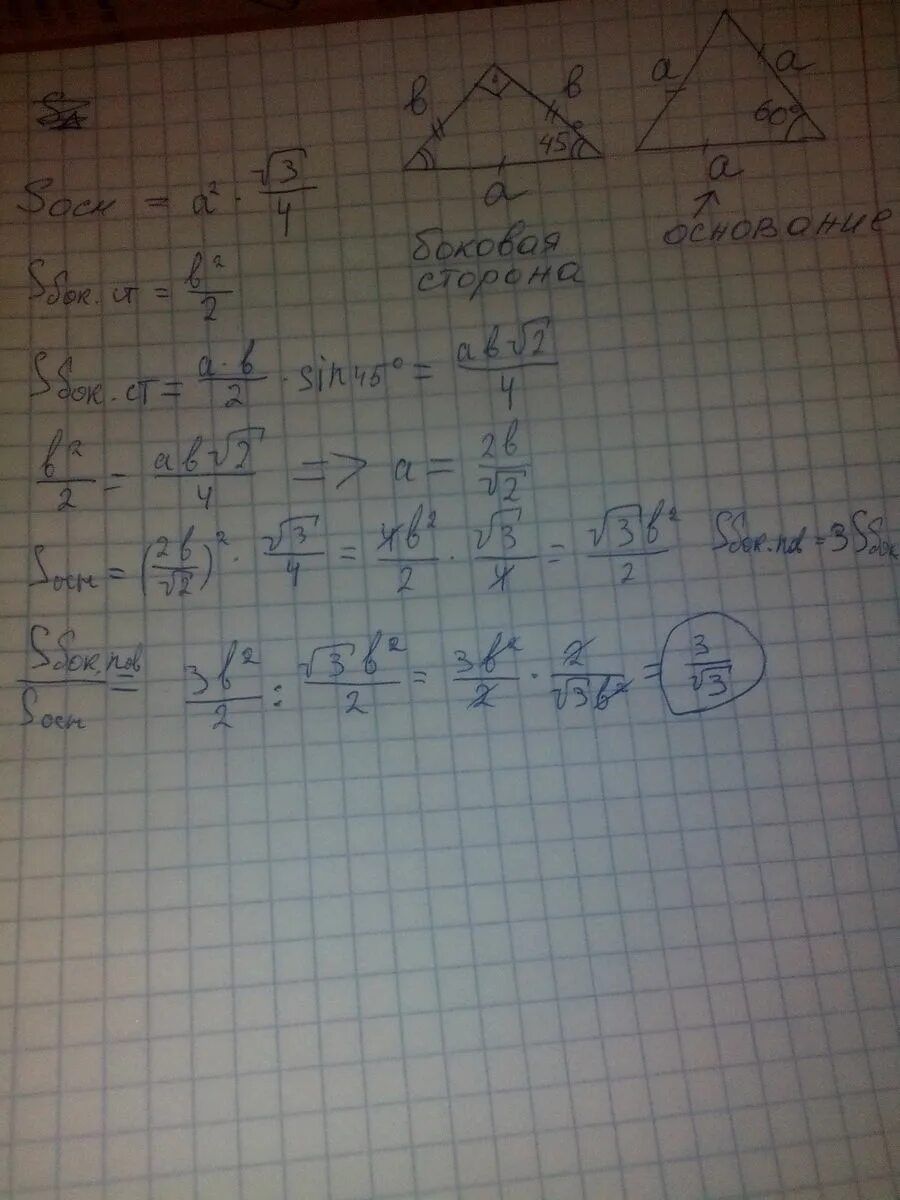 в в a a
45° 60°
a a
Sосн = a² · √3/4
боковая сторона
основание
Sбок.ст = в²/2
Sбок.ст = a·в/2 · sin45° = aв√2/4
в²/2 = aв√2/4 => a = 2в/√2
Sосн = (2в/√2)² · √3/4 = 4в²/2 · √3/4 = √3в²/2 Sбок.пов = 3Sбок
Sбок.пов/Sосн = 3в²/2 : √3в²/2 = 3в²/2 · 2/√3в² = 3/√3